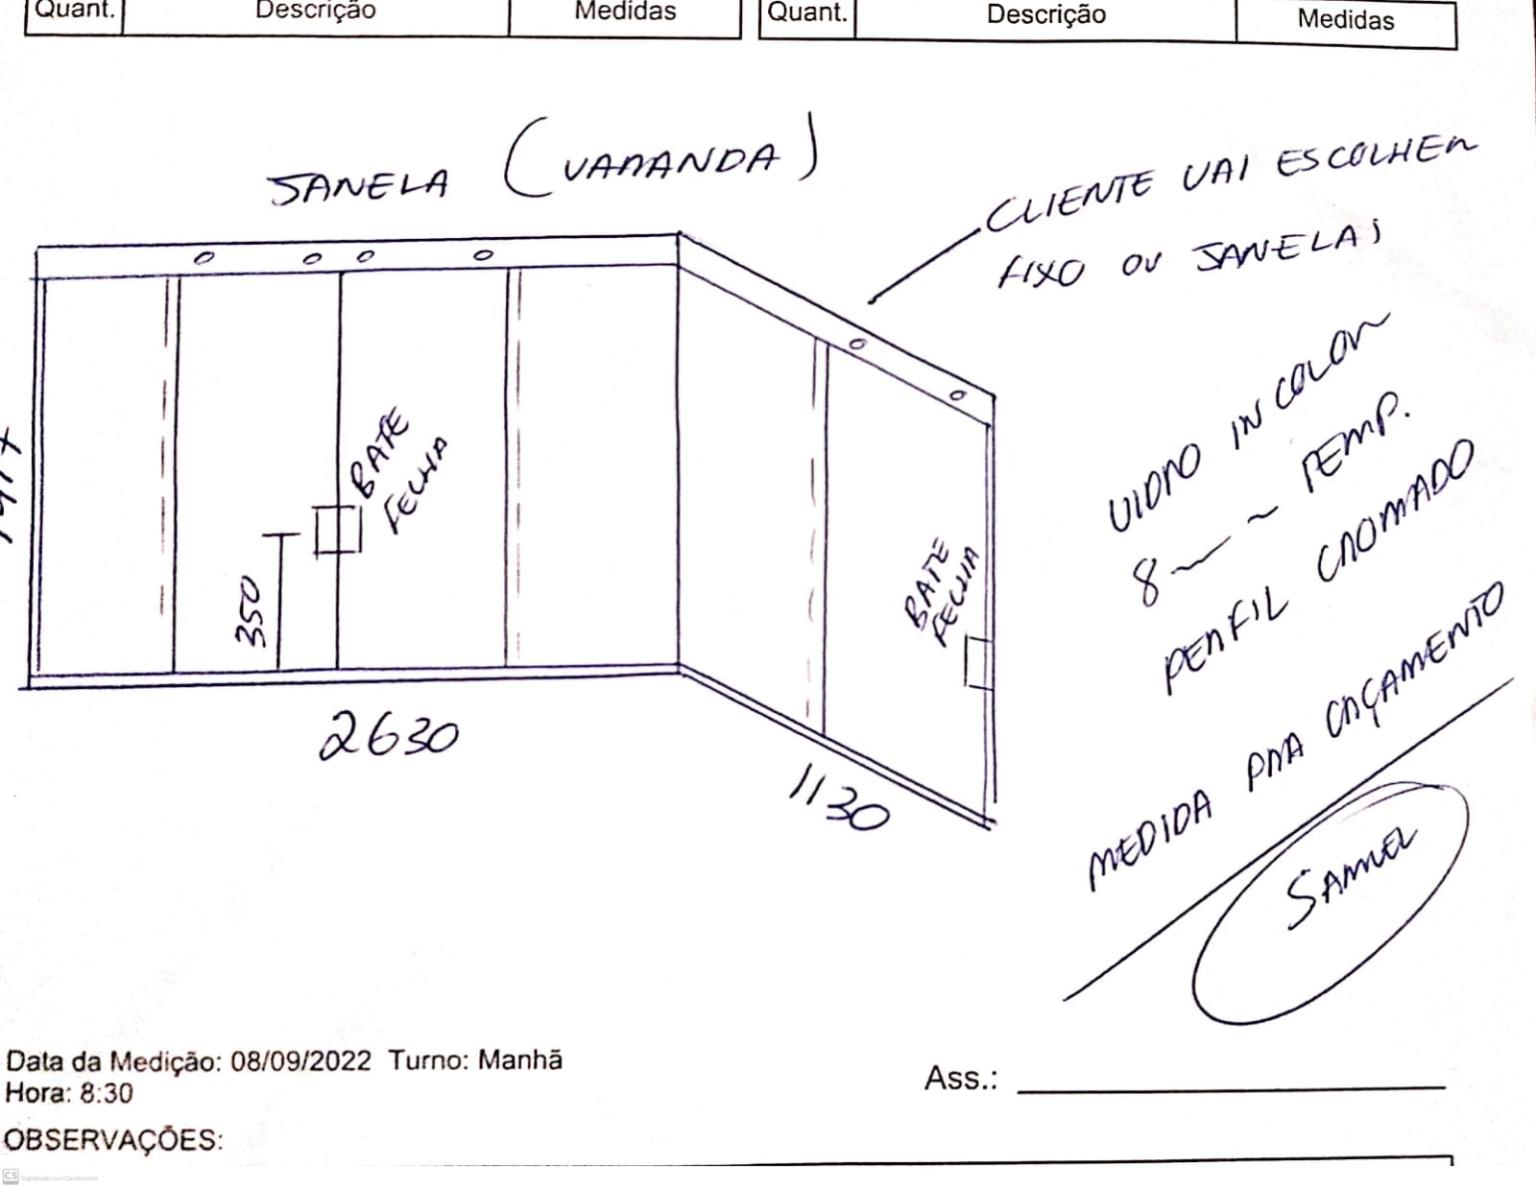 Quant. Descrição Medidas Quant. Descrição Medidas
JANELA (VARANDA)
CLIENTE VAI ESCOLHER
FIXO OU JANELA
VIDRO INCOLOR
8 TEMP.
PERFIL CROMADO
MEDIDA PRA ORÇAMENTO
SAMUEL
BATE
FECHA
350
BATE
FECHA
2630
1130
Data da Medição: 08/09/2022 Turno: Manhã
Hora: 8:30
Ass.:
OBSERVAÇÕES:
CS Digitalizado com CamScanner